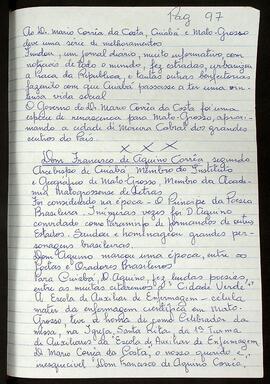 Pág 97
Ao Dr. Mario Corrêa da Costa, Cuiabá e Mato-Grosso
deve uma serie de melhoramentos
um jornal diario, muito informativo, com
noticias de todo o mundo, fez estradas, urbanizou
a Praça da Republica, e tantas outras benfeitorias
fazendo com que Cuiabá passasse a ter uma in-
tensa vida social.
O Governo do Dr. Mario Corrêa da Costa foi uma
espécie de renascença para Mato-Grosso, aproxi-
mando a cidade di Moreira Cabral dos grandes
centros do País.
X X X
Dom Francisco de Aquino Corrêa segundo
Arcebispo de Cuiabá, Membro do Instituto
e Geografico de Mato-Grosso, Membro da Acade-
mia Matogrossense de Letras.
Foi considerado na época - O Principe da Poesia
Brasileira. Inumeras vezes foi D. Aquino
convidado como Paraninfo de formandos de outros
Estados. Saudou e homenageou grandes per-
sonagens brasileiros.
Dom Aquino marcou uma época, entre os
Poetas e Oradores Brasileiros
Para Cuiabá, D. Aquino, fez lindas poesias,
entre as muitas citaremos "Cidade Verde"
A Escola de Auxiliar de Enfermagem - celula
mater da enfermagem cientifica em Mato-
Grosso teve a honra de como Celebrador da
missa, na Igreja Santa Rita, da 1ª Turma
de Auxiliares da "Escola de Auxiliar de Enfermagem
Dr Mario Corrêa da Costa, o nosso querido e
inesquecivel "Dom Francisco de Aquino Corrêa,